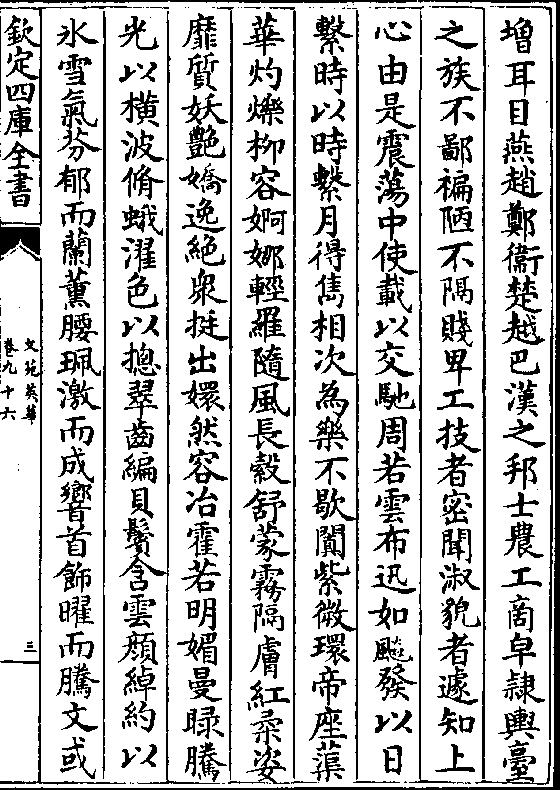 增耳目燕趙鄭衞楚越巴漢之邦士農工啇皁隷輿臺
之族不鄙褊陋不隔賤卑工技者密聞淑貌者遽知上
心由是震蕩中使載以交馳周若雲布迅如飈發以日
繫時以時繫月得雋相次為樂不歇闐紫微環帝座蕖
華灼爍栁容婀娜輕羅隨風長縠舒蒙霧隔膚紅柔姿
靡質妖艶嬌逸絶衆挺出嬛然容冶霍若明媚曼睩騰
光以横波脩蛾濯色以揔翠齒編貝鬢含雲顔綽約以
氷雪氣芬郁而蘭薫腰珮激而成響首飾曜而騰文或
欽定四庫全書
文苑英華
卷九十六
三